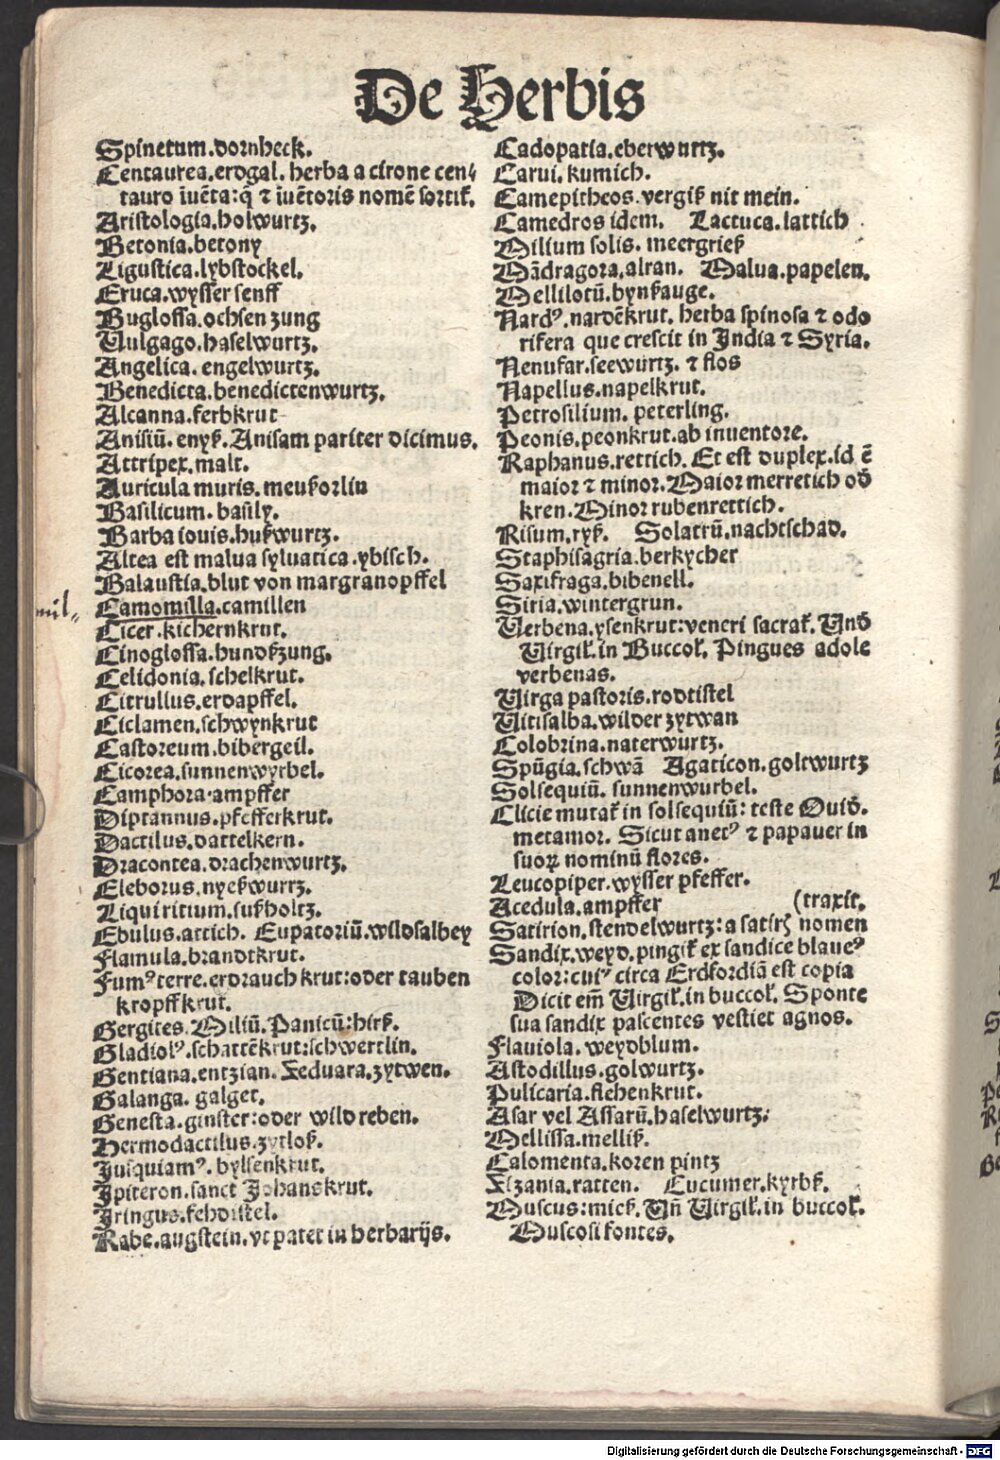 De Herbis
Spinetum.dornheck.
Centaurea.erdgal. herba a cirone cen⸗
tauro iuēta:q̄ ⁊ iuētoris nomē sortiť.
Aristologia.holwurtz.
Betonia.betony
Ligustica.lybstockel.
Eruca.wysser senff
Buglossa.ochsen zung
Uulgago.haselwurtz.
Angelica.engelwurtz.
Benedicta.benedictenwurtz.
Alcanna.ferbkrut
Anisiū. enyß.Anisam pariter dicimus.
Attripex.malt.
Auricula muris.meußorlin
Basilicum.basily.
Barba iouis.hußwurtz.
Altea est malua syluatica.ybisch.
Balaustia.blut von margranopffel
Camomilla.camillen
Cicer.kichernkrut.
Cinoglossa.hundßzung.
Celidonia.schelkrut.
Citrullus.erdapffel.
Ciclamen.schwynkrut
Castoreum.bibergeil.
Cicorea.sunnenwyrbel.
Camphora.ampffer
Diptannus.pfefferkrut.
Dactilus.dattelkern.
Dracontea.drachenwurtz.
Eleborus.nyeßwurtz.
Liquiritium.sußholtz.
Ebulus.attich. Eupatoriū.wildsalbey
Flamula.brandtkrut.
Fumꝰ terre.erdrauch krut:oder tauben
kropff krut.
Gergites.Miliū.Panicū:hirß.
Gladiolꝰ.schattēkrut:schwertlin.
Gentiana.entzian. Zeduara.zytwen.
Galanga. galget.
Genesta.ginster:oder wild reben.
Hermodactilus.zytloß.
Jusquiamꝰ.bylsenkrut.
Jpiteron.sanct Johanskrut.
Jringus.
Rabe.augstein.vt patet in herbarijs.
Cadopatia.eberwurtz.
Carui.kumich.
Camepitheos.vergiß nit mein.
Camedros idem. Lactuca.lattich
Milium solis. meergrieß
Mādragora.alran. Malua.papelen.
Mellilotū.bynßauge.
Nardꝰ.nardēkrut. herba spinosa ⁊ odo
rifera que crescit in India ⁊ Syria.
Nenufar.seewurtz. ⁊ flos
Napellus.napelkrut.
Petrosilium. peterling.
Peonis.peonkrut.ab inuentore.
Raphanus.rettich. Et est duplex.id ē
maior ⁊ minor.Maior merretich oď
kren.Minor rubenrettich.
Risum.ryß. Solatrū.nachtschad.
Staphisagria.berkycher
Saxifraga.bibenell.
Siria.wintergrun.
Uerbena.ysenkrut:veneri sacrať. Und
Uirgił.in Buccoł. Pingues adole
verbenas.
Uirga pastoris.rodtistel
Uitisalba.wilder zytwan
Colobrina.naterwurtz.
Spūgia.schwā Agaticon.goltwurtz
Solsequiū. sunnenwurbel.
Clicie mutať in solsequiū: teste Ouid.
metamor. Sicut anetꝰ ⁊ papauer in
suoꝝ nominū flores.
Leucopiper.wysser pfeffer.
Acedula.ampffer (traxit.
Satirion.stendelwurtz:a satirꝭ nomen
Sandix.weyd.pingiť ex sandice blaueꝰ
color:cuiꝰ circa Erdfordiā est copia
Dicit em̄ Uirgił.in buccoł. Sponte
sua sandix pascentes vestiet agnos.
Flauiola. weydblum.
Astodillus.golwurtz.
Pulicaria.flehenkrut.
Asar vel Assarū.haselwurtz.
Mellissa.melliß.
Calomenta.koren pintz
Zizania.ratten. Cucumer.kyrbß.
Muscus:mieß. Vn̄ Uirgił.in buccoł.
Muscosi fontes.
Digitalisierung gefördert durch die Deutsche Forschungsgemeinschaft - DFG